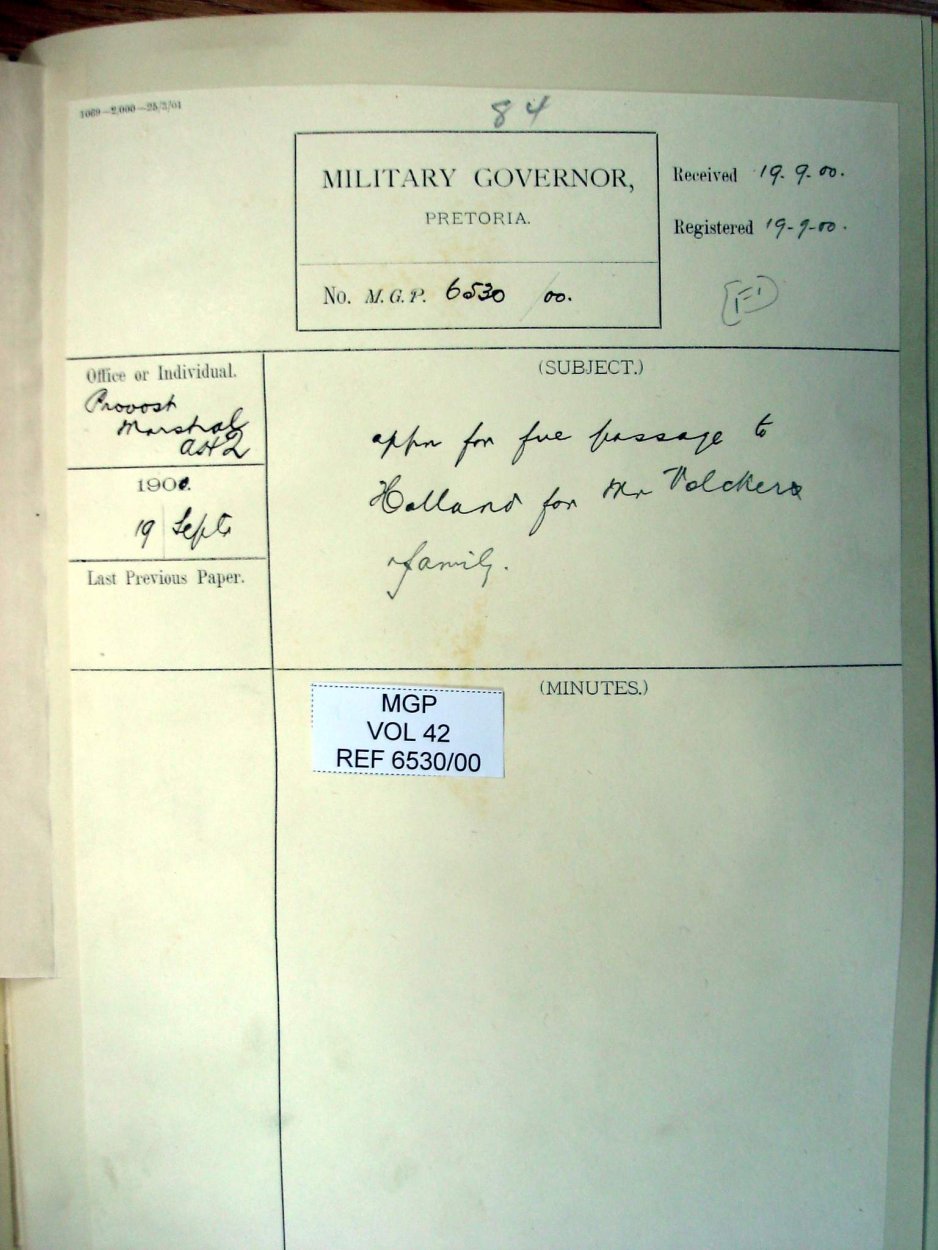 1069—2,000—25/3/01
84
MILITARY GOVERNOR,
PRETORIA.
No. M.G.P. 6530/00.
Received 19.9.00.
Registered 19-9-00.
Office or Individual.
Provost
Marshal
1900.
19 Septr
Last Previous Paper.
(SUBJECT.)
appn for free passage to
Holland for Mr Volckers
family.
(MINUTES.)
MGP
VOL 42
REF 6530/00